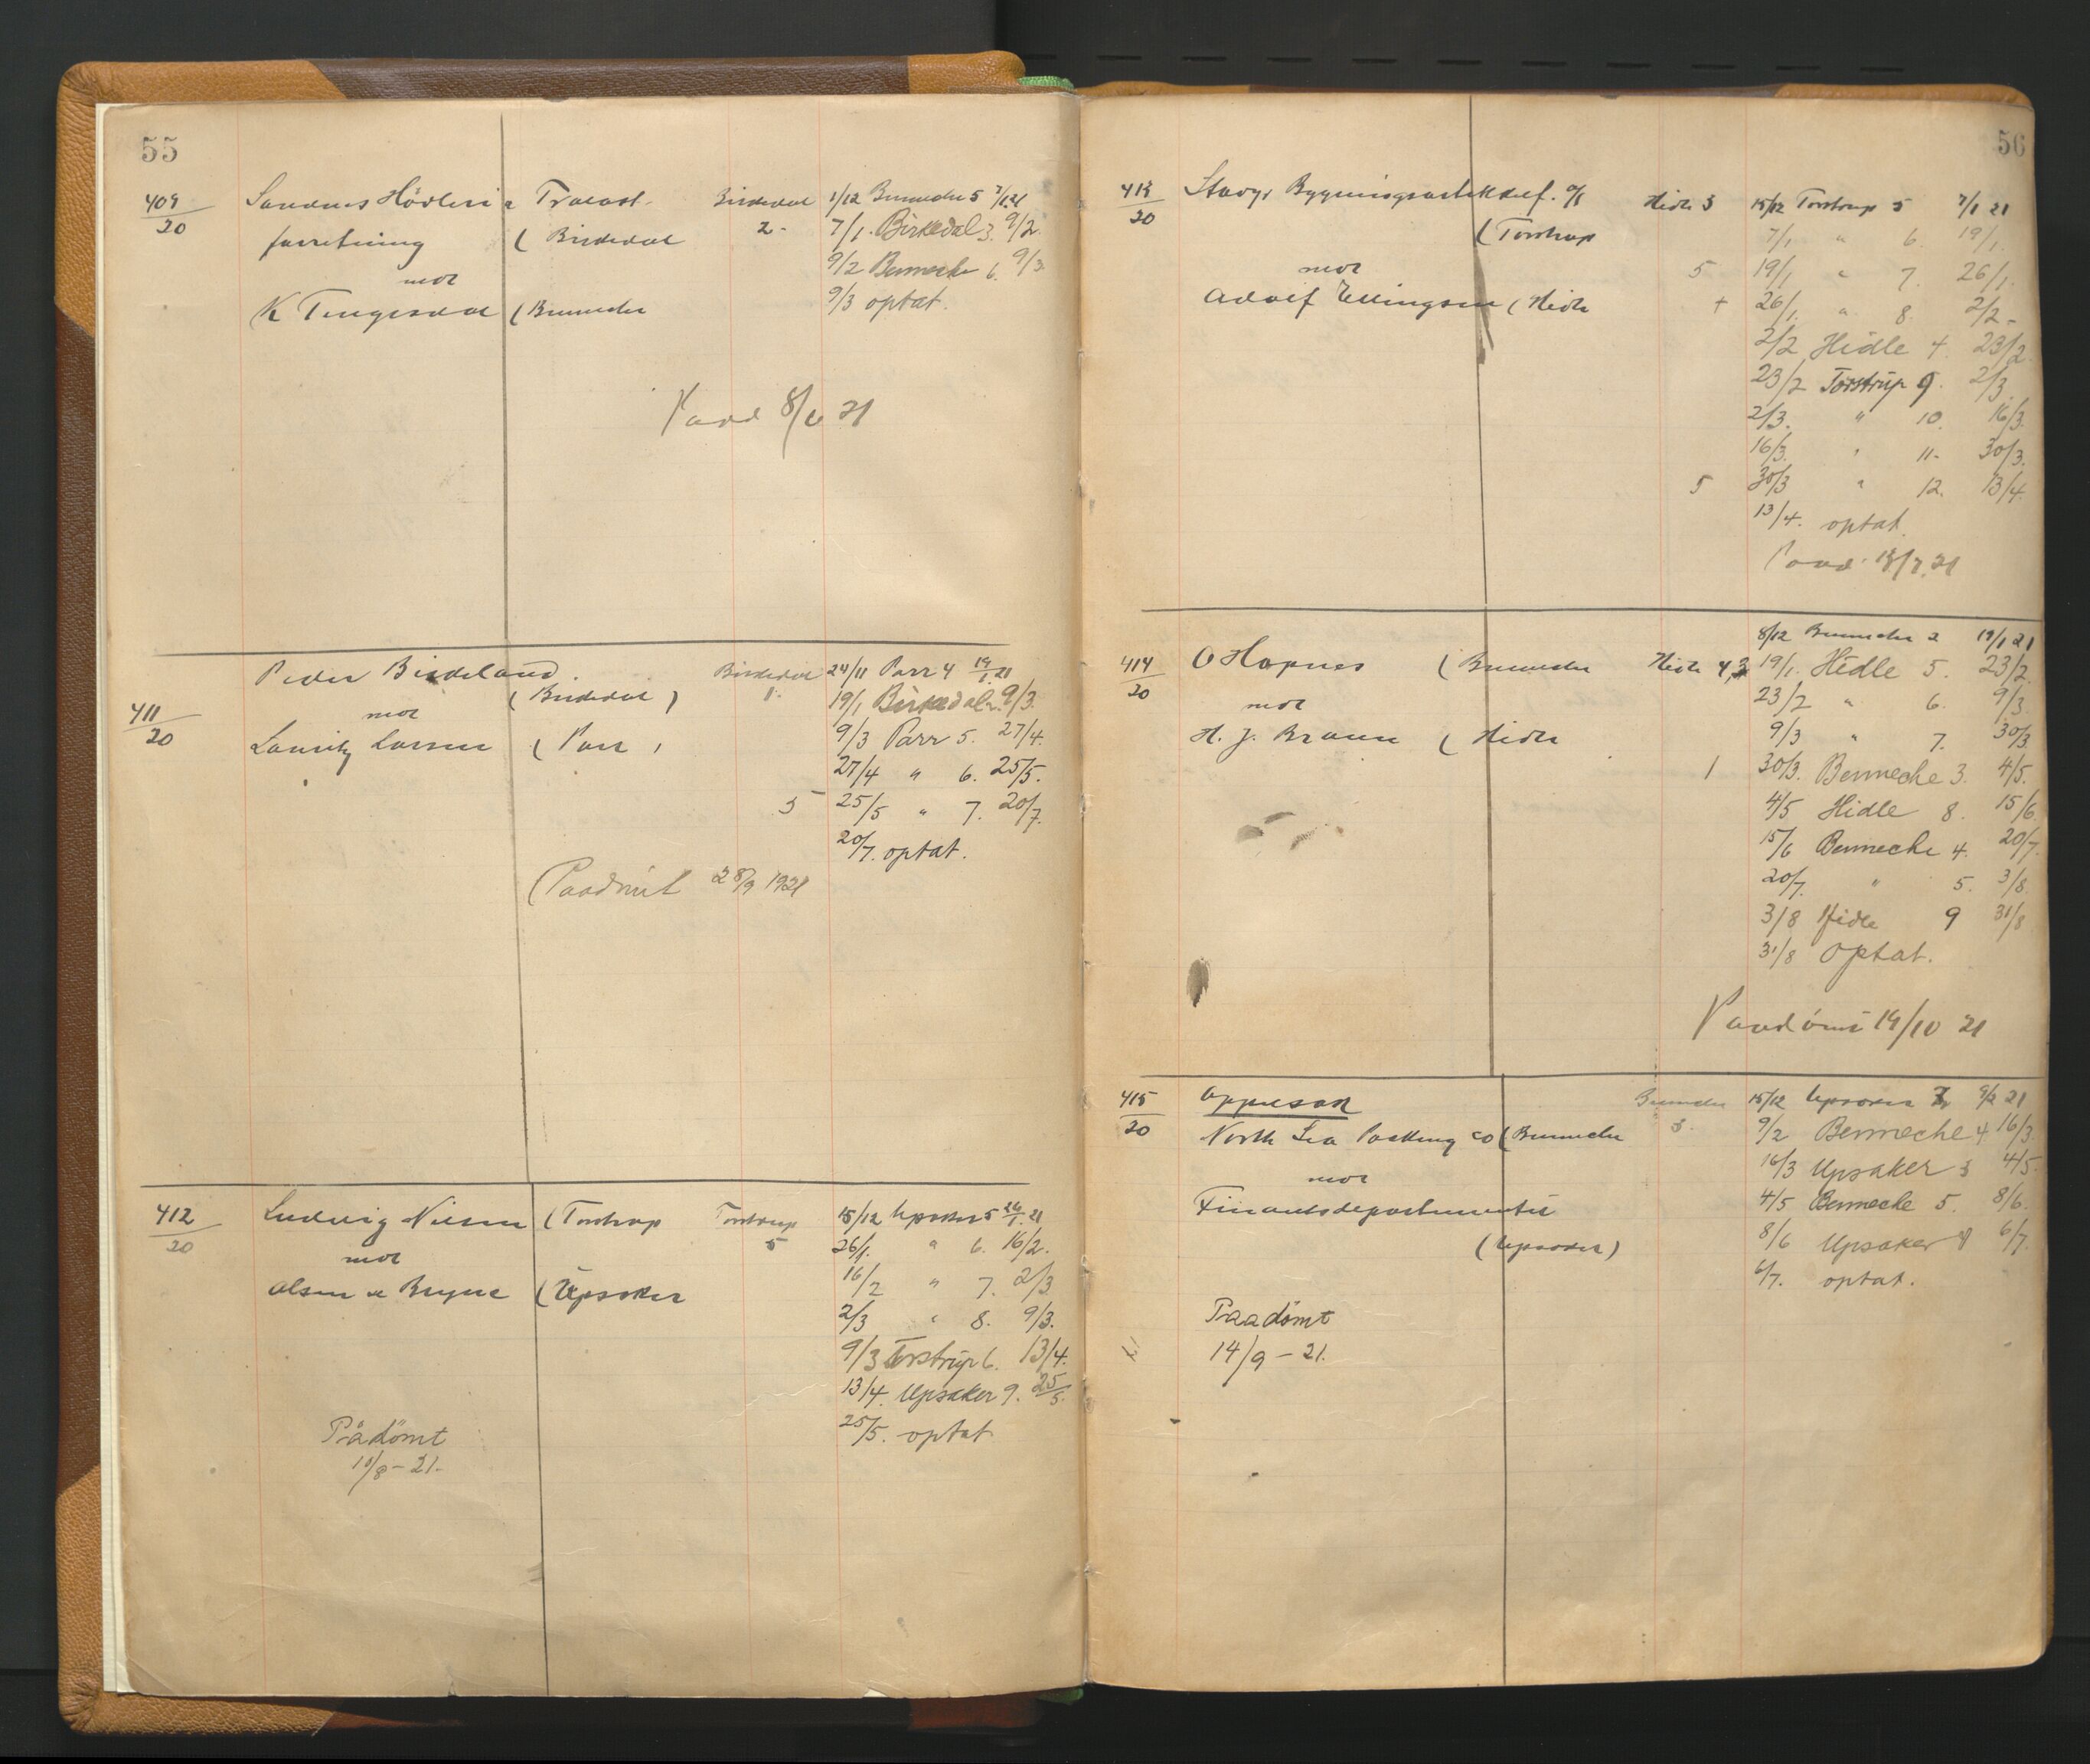 55
409/20 Sandnes Høvleri & Trælast- Birkedal 1/12 Bennecke 5 7/1 21
forretning ( Birkedal 2- 7/1. Birkedal 3. 9/2.
mot 9/2 Bennecke 6. 9/3
K Tengesdal ( Bennecke 9/3 optat.
Paad 8/6 21
Peder Birkeland. Birkedal 24/11 Parr 4 19/1 21
( Birkedal ) 1. 19/1 Birkedal 2. 9/3.
411/20 mot
Lauritz Larsen ( Parr ) 9/3 Parr 5. 27/4.
27/4 " 6. 25/5.
5 25/5 " 7. 20/7.
20/7. optat.
Paadømt 28/9 1921
412/20 Ludvig Nilsen ( Torstrup Torstrup 15/12 Upsaker 5 26/1. 21
5 26/1. " 6. 16/2.
mot 16/2 " 7. 2/3
Olsen & Bryne ( Upsaker
2/3 " 8. 9/3.
9/3 Torstrup 6. 13/4.
13/4. Upsaker 9. 25/5.
25/5. optat
Pådömt
10/8 - 21.
56
413/20 Stavgr Bygningsartikkelf. A/S Hidle 3 15/12 Torstrup 5 7/1 21
( Torstrup 7/1 " 6. 19/1.
mot 5 19/1 " 7. 26/1.
Adolf Ellingsen ( Hidle + 26/1. " 8. 2/2-
2/2 Hidle 4. 23/2.
23/2 Torstrup 9. 2/3.
2/3. " 10. 16/3.
16/3. " 11- 30/3.
5 30/3 " 12. 13/4.
13/4. optat.
Paad. 13/7. 21
8/12 Bennecke 2 19/1 21
414/20 O Hapnes ( Bennecke Hidle 4, 3 19/1. Hidle 5. 23/2.
mot 23/2 " 6. 9/3.
H. J. Braun ( Hidle 9/3 " 7. 30/3.
1 30/3. Bennecke 3. 4/5.
4/5 Hidle 8. 15/6.
15/6 Bennecke 4. 20/7.
20/7. " 5. 3/8.
3/8 Hidle 9 31/8
31/8 optat.
Paadömt 14/10 21
415/20 Oppnesak Bennecke 15/12 Upsaker 2 9/2 21
North Sea Packing Co ( Bennecke 3. 9/2 Bennecke 4 16/3.
mot 16/3 Upsaker 3 4/5.
Finantsdepartementet 4/5 Bennecke 5. 8/6.
( Upsaker ) 8/6 Upsaker 4 6/7.
6/7. optat.
Paadömt
14/9 - 21.